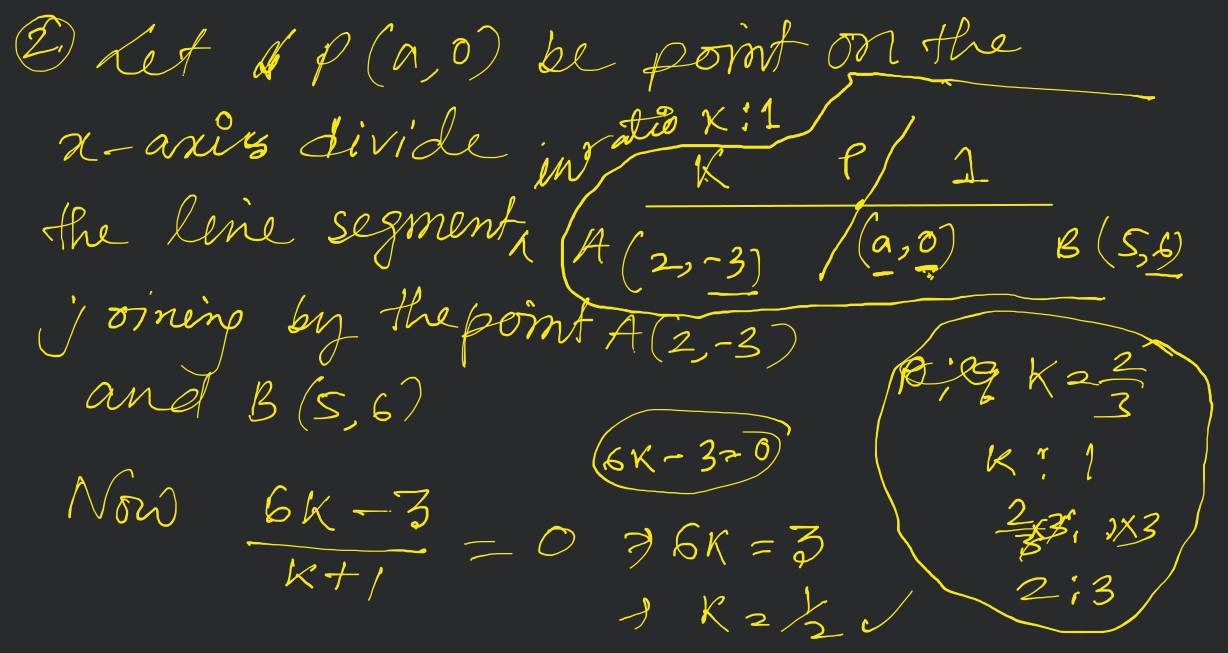 ② Let P(a,0) be point on the
x-axis divide in ratio K:1
the line segment
K P 1
A(2,-3) (a,0) B(5,6)
joining by the point A(2,-3)
and B(5,6)
6K-3=0
Now (6K-3)/(K+1) = 0 ⇒ 6K = 3
→ K = 1/2 ✓
K = 2/3
K : 1
2/3 ×3 : 1×3
2 : 3